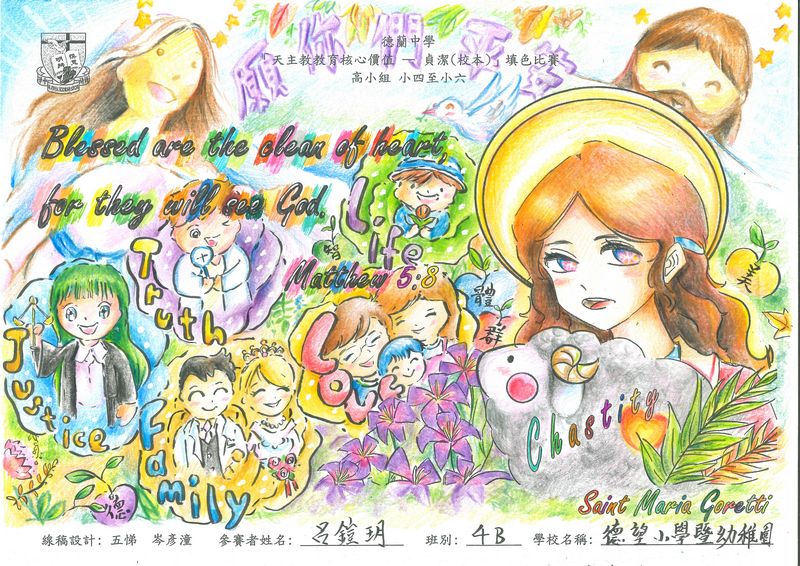 願你們平安
德蘭中學
「天主教教育核心價值 — 貞潔(校本)」填色比賽
高小組 小四至小六
Blessed are the clean of heart,
for they will see God.
Matthew 5:8
Truth
Life
Justice
Family
Love
體
群
美
德
Chastity
Saint Maria Goretti
線稿設計: 五悌 岑彥潼 參賽者姓名: 呂鎧玥 班別: 4B 學校名稱: 德望小學暨幼稚園